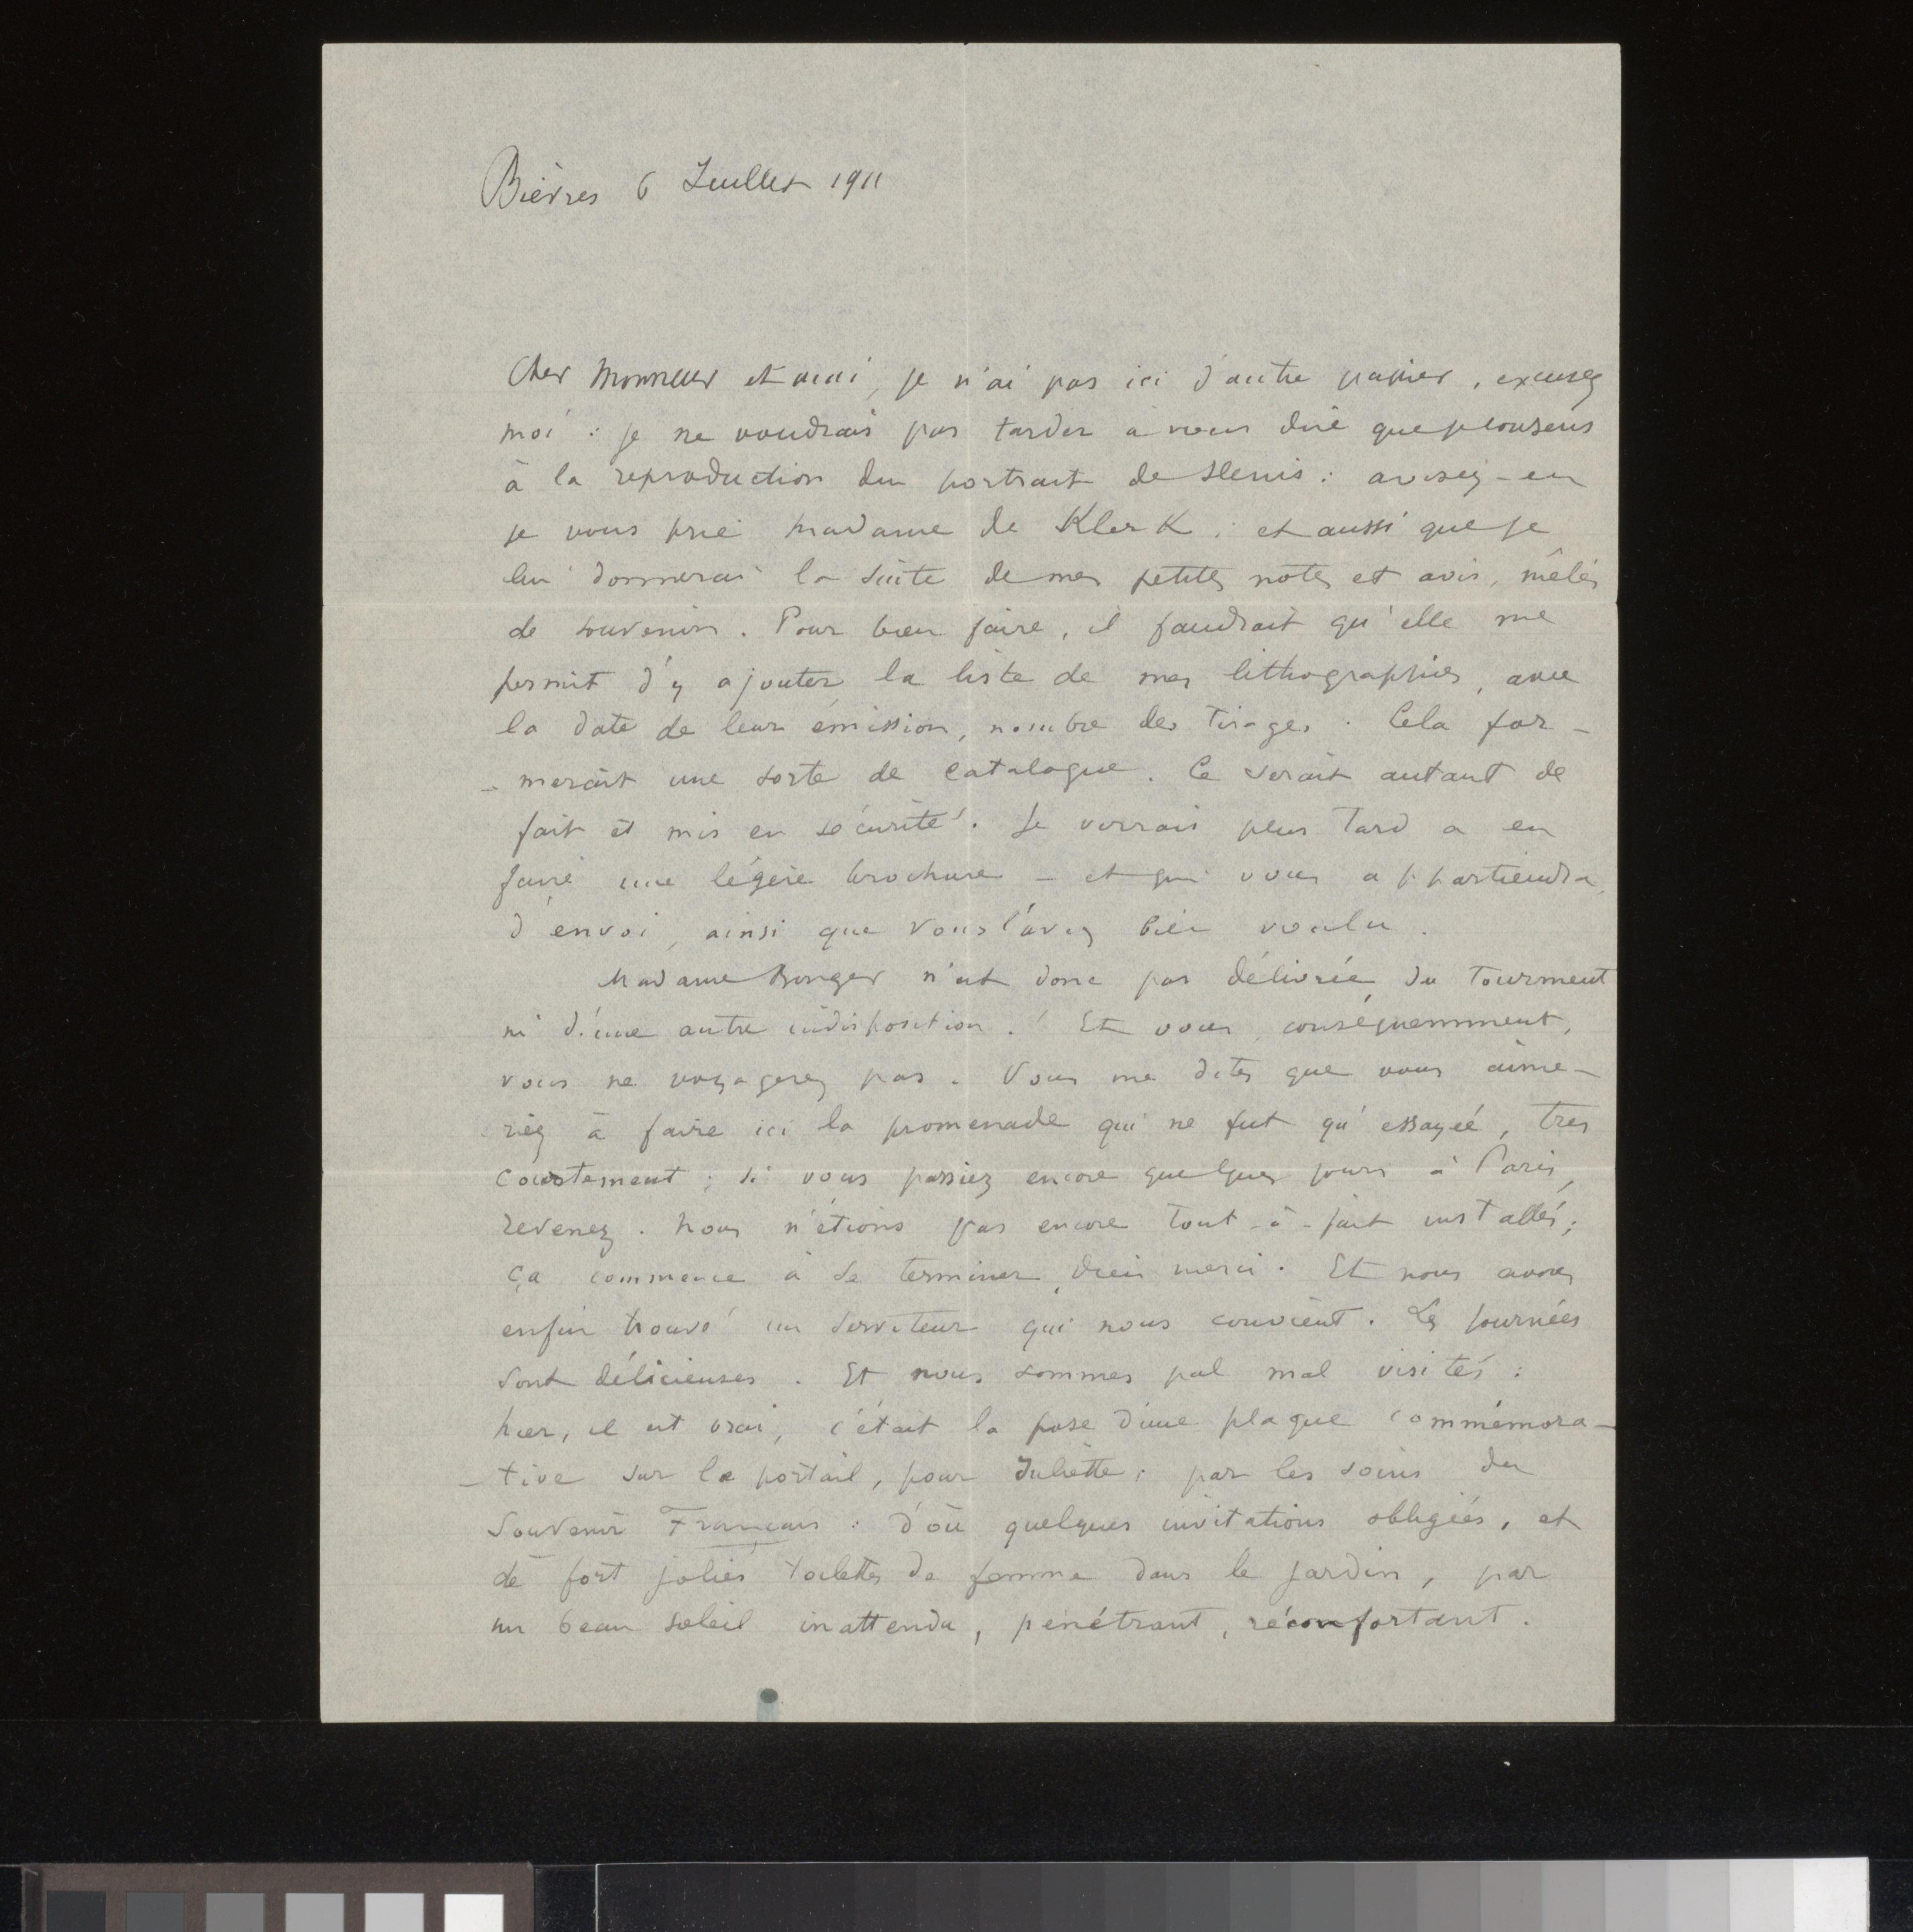 Bièvres 6 Juillet 1911
Cher Monsieur et ami, je n'ai pas ici d'autre papier, excusez
moi : je ne voudrais pas tarder à vous dire que je consens
à la reproduction du portrait de Denis : avisez-en
je vous prie Madame de Klerk ; et aussi que je
lui donnerai la suite de mes petites notes et avis, mêlés
de souvenirs. Pour bien faire, il faudrait qu'elle me
permit d'y ajouter la liste de mes lithographies, avec
la date de leur émission, nombre des tirages. Cela for-
-merait une sorte de catalogue. Ce serait autant de
fait et mis en sécurité. Je verrais plus tard a en
faire une légère brochure - et qui vous appartiendra
d'envoi, ainsi que vous l'avez bien voulu.
Madame Bonger n'est donc pas délivrée du tourment
ni d'une autre indisposition ! Et vous, conséquemment,
vous ne voyagerez pas. Vous me dites que vous aime-
riez à faire ici la promenade qui ne fut qu'essayée, tres
courtement ; si vous passiez encore quelques jours à Paris,
revenez. Nous n'étions pas encore tout-à-fait installés ;
ça commence à se terminer, dieu merci. Et nous avons
enfin trouvé un serviteur qui nous convient. Les journées
sont délicieuses. Et nous sommes pal mal visités :
hier, il est vrai, c'était la pose d'une plaque commémora-
-tive sur le portail, pour Juliette ; par les soins du
Souvenir Français : d'où quelques invitations obligées, et
de fort jolies toilettes de femme dans le jardin, par
un beau soleil inattendu, pénétrant, réconfortant.